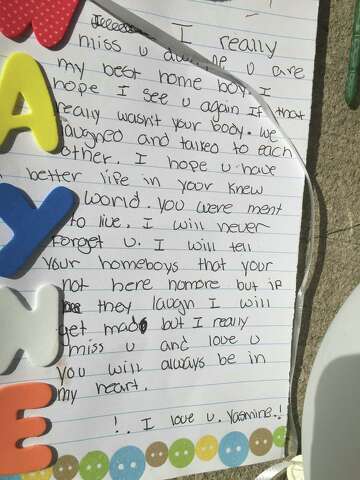 WAYNE
I really
miss u du u are
my best home boy. I
hope I see u again if that
really wasn't your body. we
laughed and talked to each
other. I hope u have
better life in your knew
world. you were ment
to live. I will never
forget u. I will tell
your homeboys that your
not here nomore but if
they laugh I will
get mad but I really
miss u and love u
you will always be in
my heart.
!.. I love u. Yasmine.!